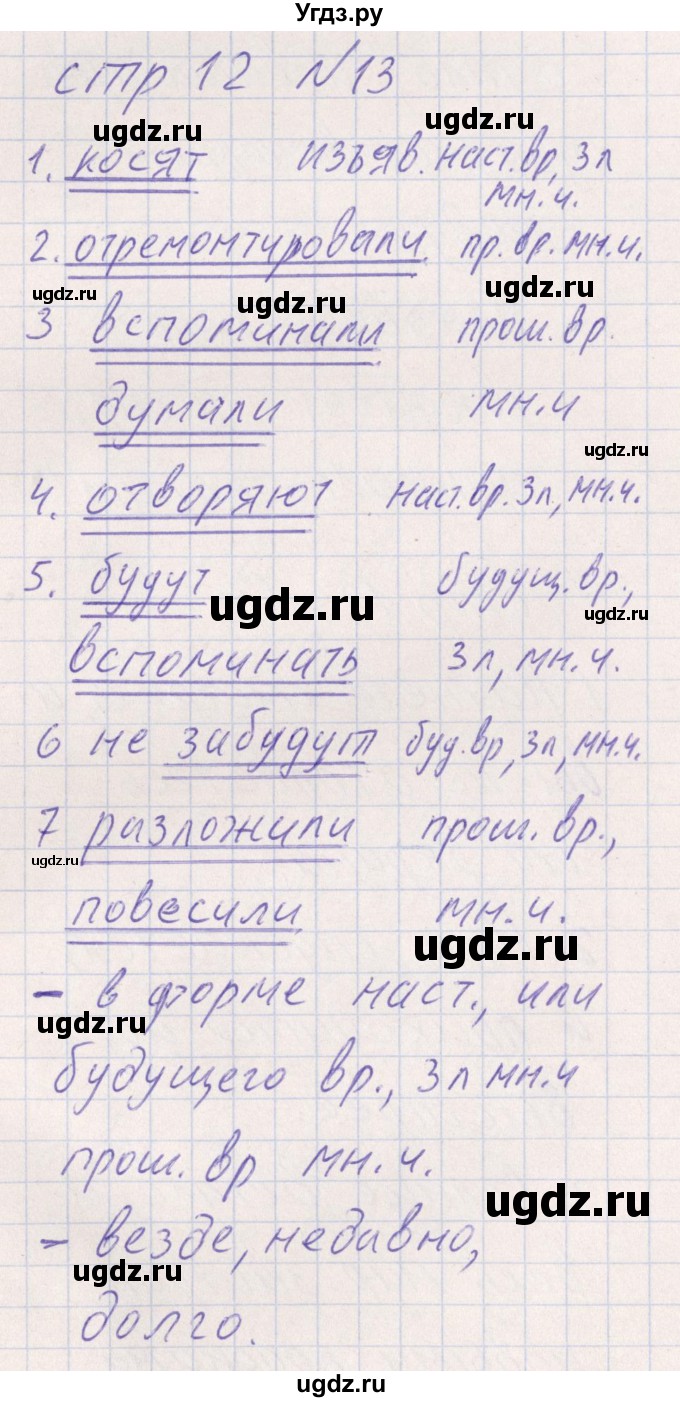 Угдз.ру
стр 12 №13
ugdz.ru ugdz.ru
1. косят изъяв. наст.вр, 3л
мн.ч.
2. отремонтировали пр.вр.мн.ч.
ugdz.ru ugdz.ru ugdz.ru
3 вспоминали прош.вр.
думали мн.ч
ugdz.ru
4. отворяют наст.вр.3л,мн.ч.
5. будут будущ.вр.,
ugdz.ru ugdz.ru
вспоминать 3л,мн.ч.
6 не забудут буд.вр,3л,мн.ч.
7 разложили прош.вр.,
ugdz.ru
повесили мн.ч.
ugdz.ru
- в форме наст., или
ugdz.ru
будущего вр., 3л мн.ч
прош.вр мн.ч.
ugdz.ru
- везде, недавно,
ugdz.ru
долго.
ugdz.ru